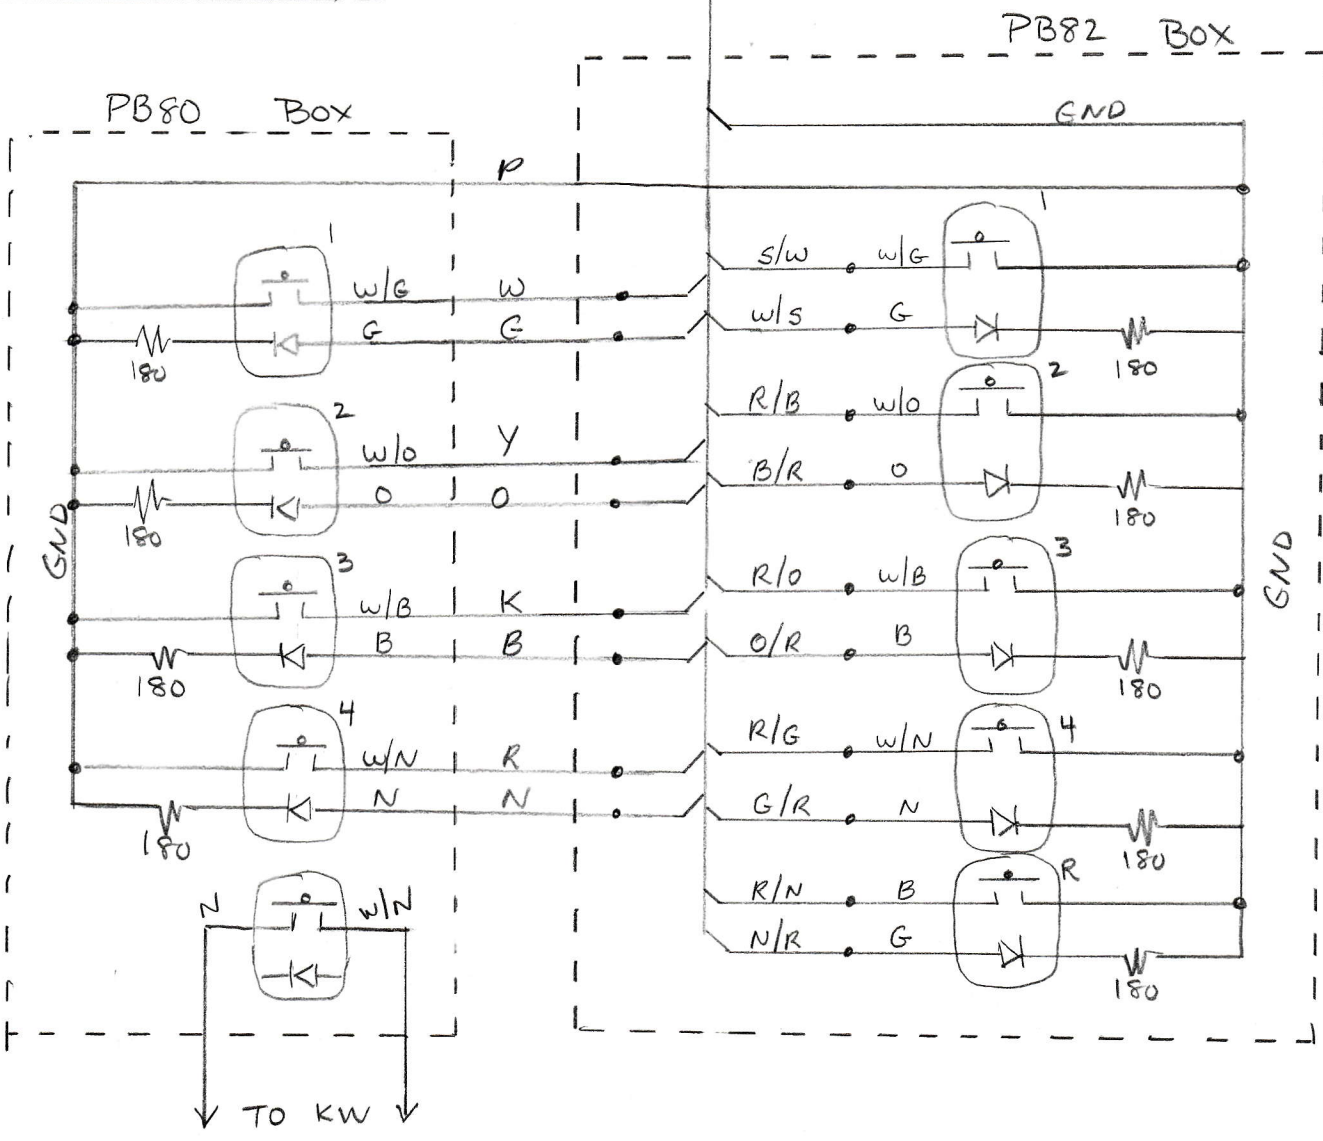 PB82 BOX
PB80 BOX
GND
P
1
W/G W
G G
180
2
W/O Y
O O
180
3
W/B K
B B
180
4
W/N R
N N
180
GND
N W/N
TO KW
1
S/W W/G
W/S G
180
2
R/B W/O
B/R O
180
3
R/O W/B
O/R B
180
4
R/G W/N
G/R N
180
R
R/N B
N/R G
180
GND